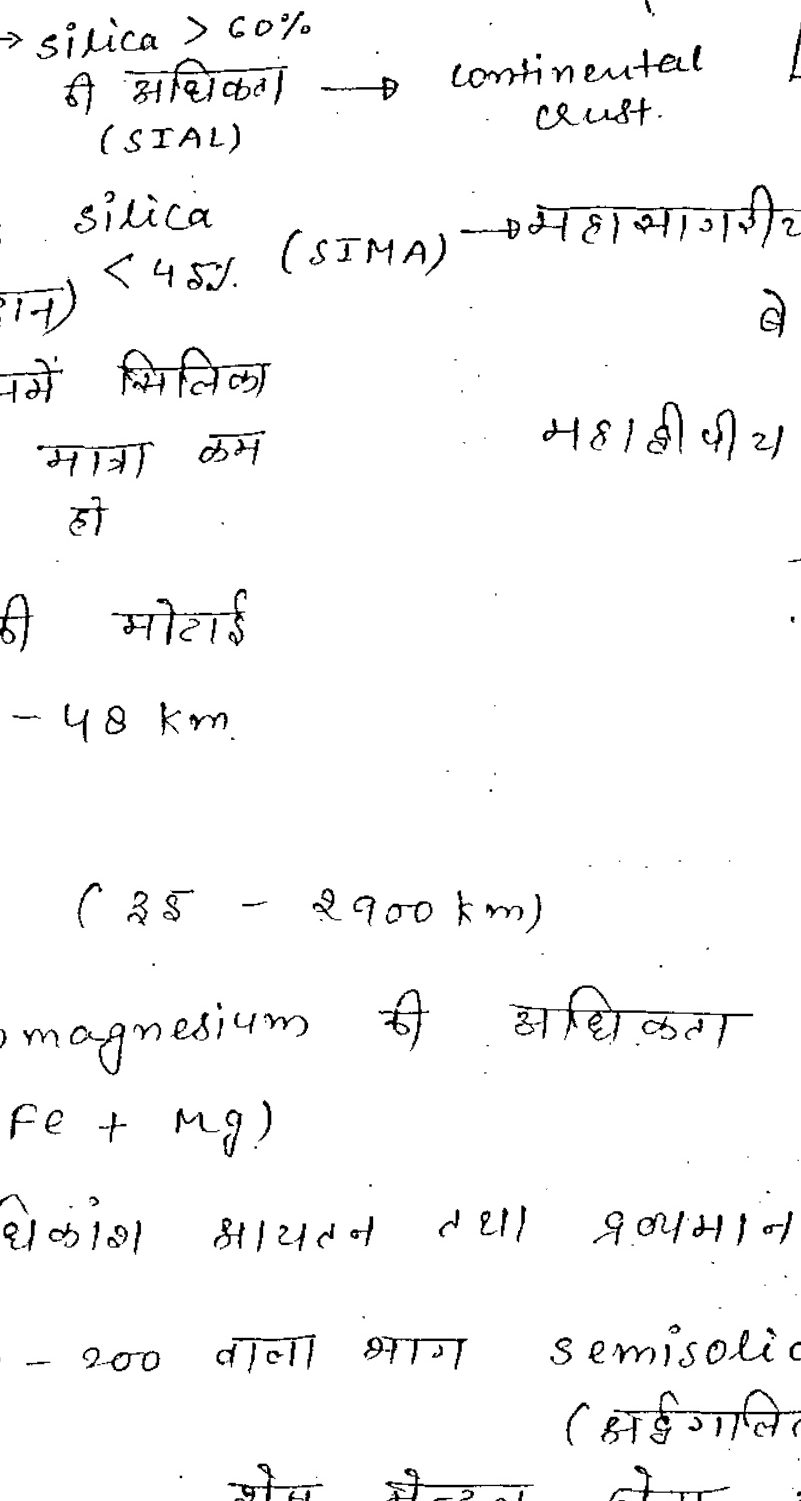 → silica > 60%
की अधिकता → continental
(SIAL) crust.
silica
< 45% (SIMA) → महासागरीय
सिलिका
महाद्वीपीय
मात्रा कम
हो
की मोटाई
- 48 km.
(35 - 2900 km)
magnesium की अधिकता
Fe + Mg)
धिकांश आयतन तथा द्रव्यमान
- 200 वाला भाग semisolid
(अर्द्धगलित